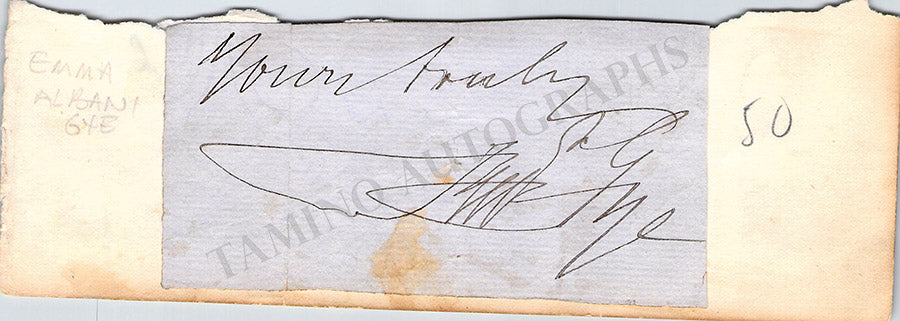 EMMA
ALBANI
GYE
Yours truly
Gye
50
TAMINO AUTOGRAPHS